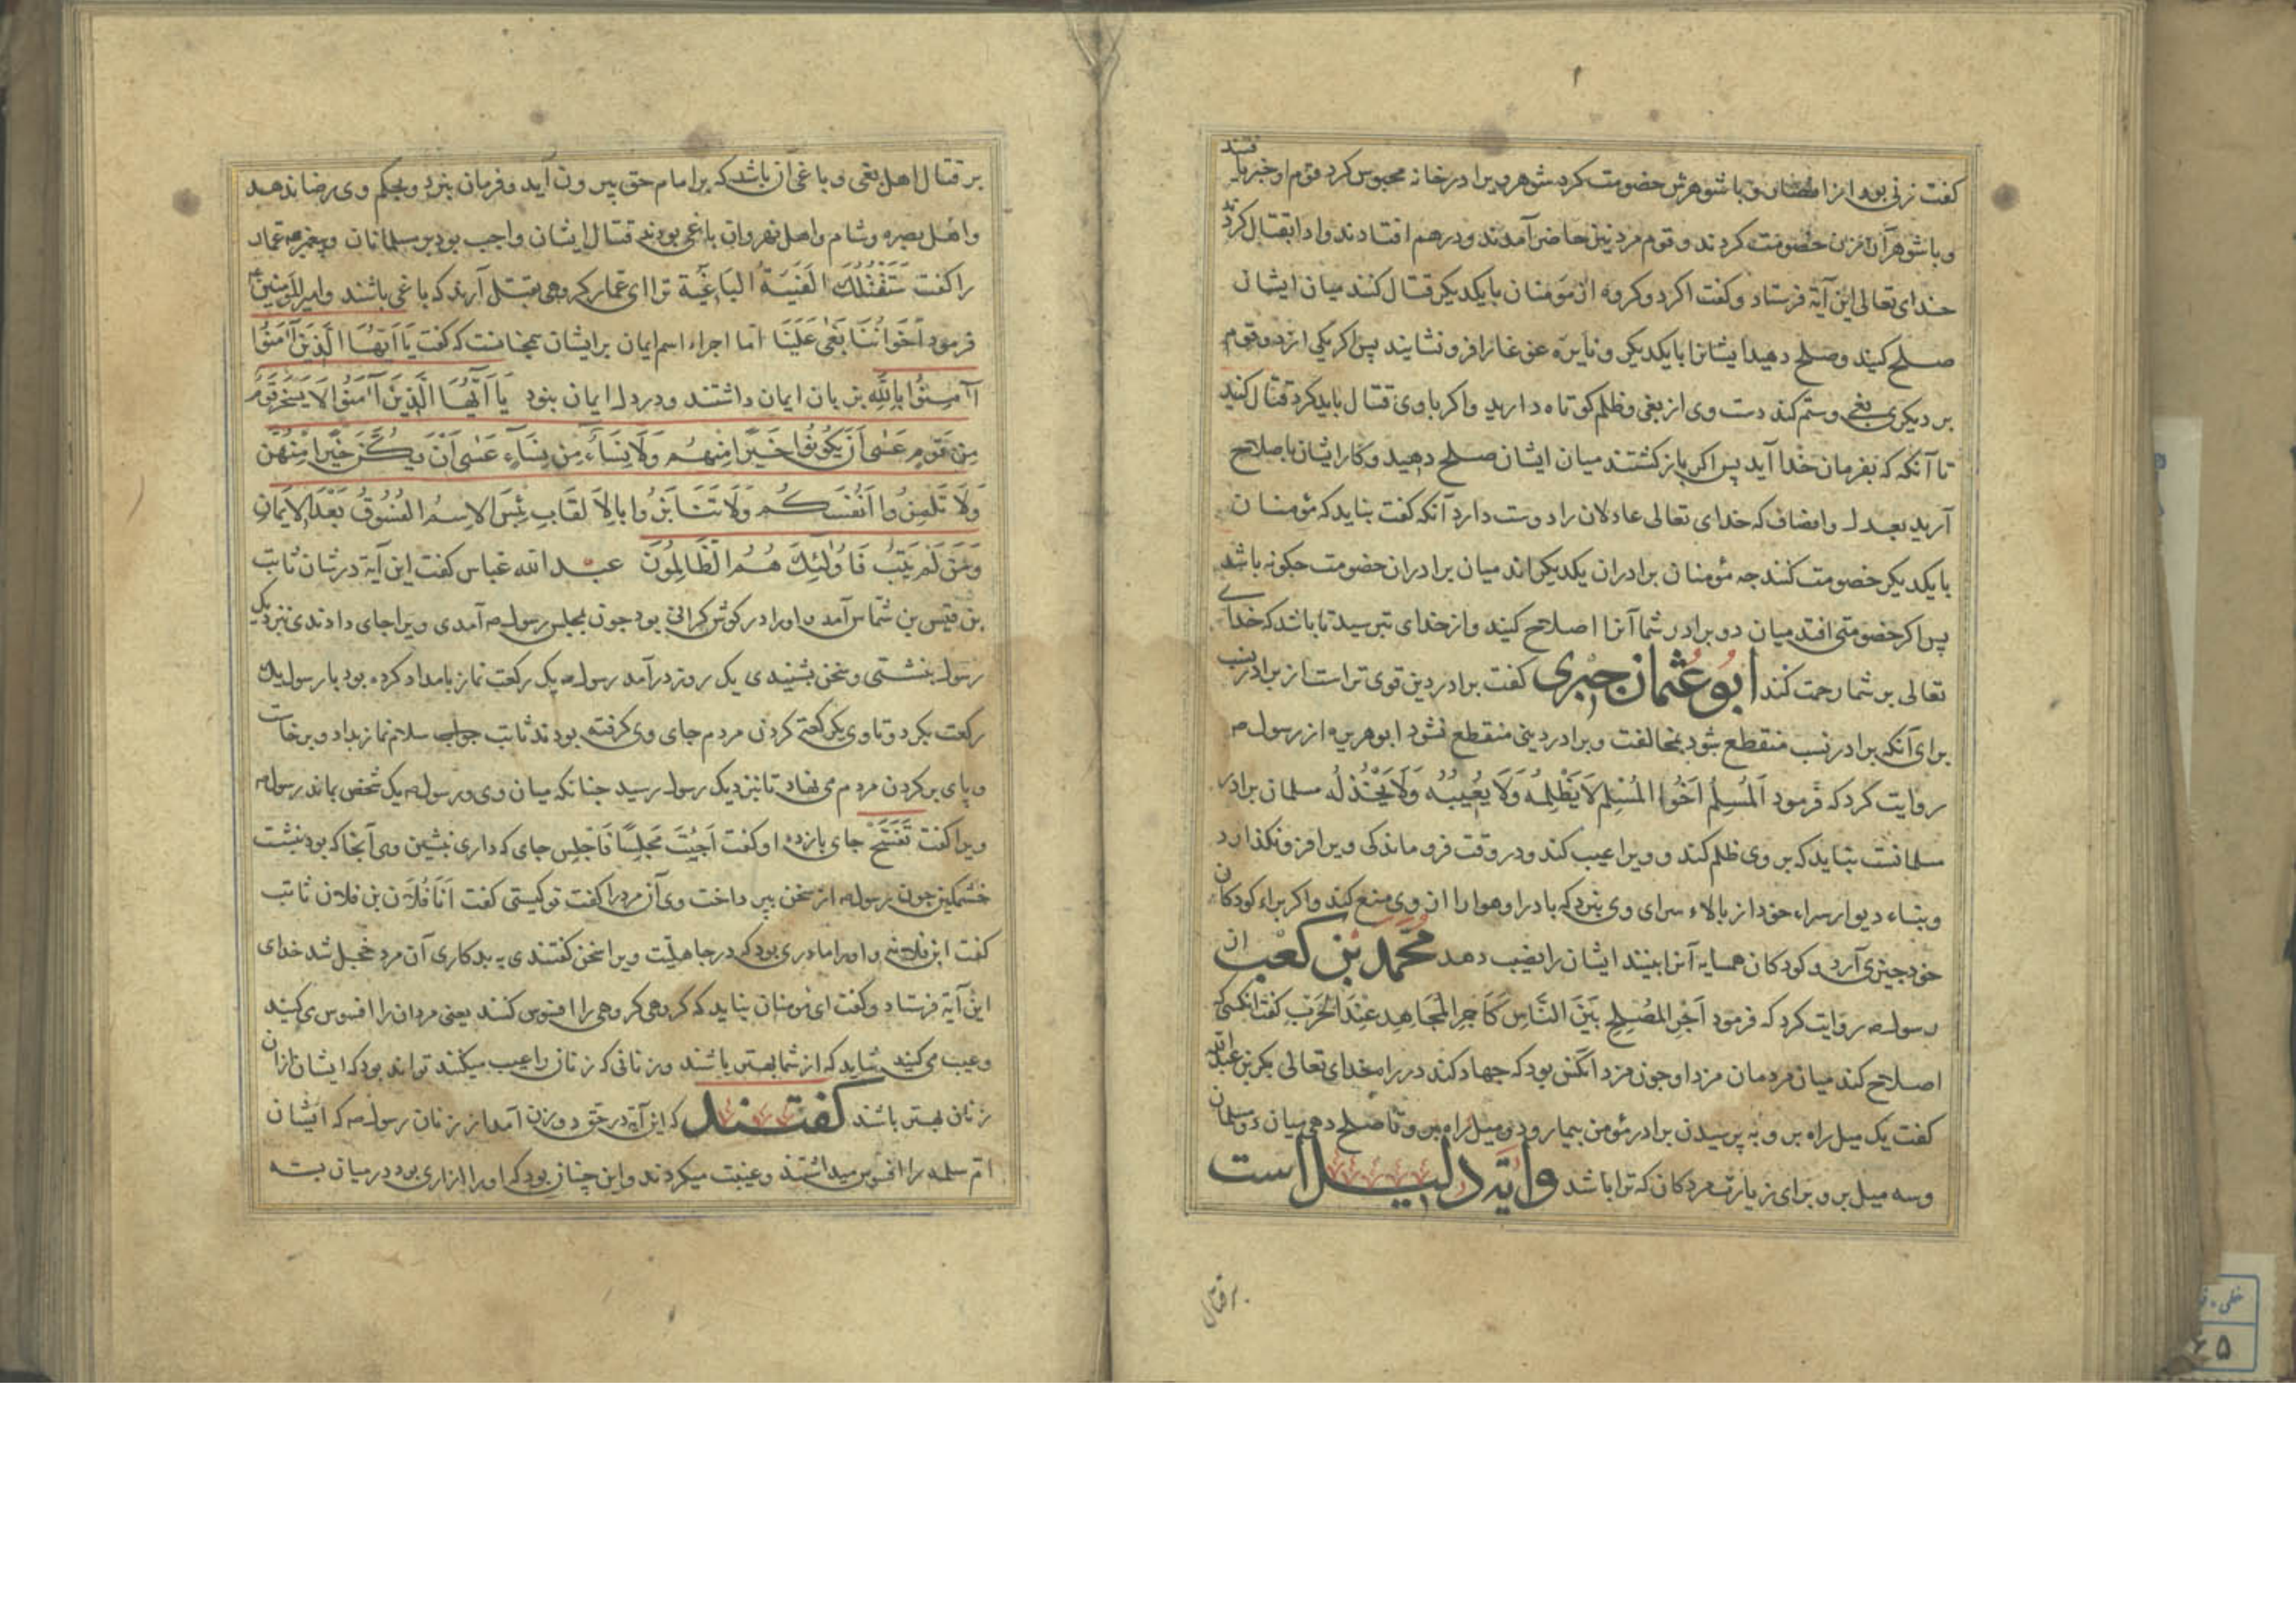 گفت زنی بود از انصار و با شوهرش خصومت کرد شوهر ویرا در خانه محبوس کرد قوم او خبر یافتند
و با شوهر آن زن خصومت کردند و قوم مرد نیز حاضر آمدند و در هم افتادند و ادا بقتال کرد
خدای تعالی این آیة فرستاد و کفت اکر دو کروه از مؤمنان با یکدیکر قتال کنند میان ایشان
صلح کنید و صلح دهید ایشانرا با یکدیکر و نایره غوغا را فرو نشایند پس اکر یکی از دو قوم
بر دیکری بغی و ستم کند دست وی از بغی و ظلم کوتاه دارید و اکر با وی قتال باید کرد قتال کنید
تا آنکه که بفرمان خدا آید پس اکر باز کشتند میان ایشان صلح دهید و کار ایشان با صلاح
آرید بعدل و انصاف که خدای تعالی عادلان را دوست دارد آنکه کفت نباید که مؤمنان
با یکدیکر خصومت کنند جه مؤمنان برادران یکدیکراند میان برادران خصومت جکونه باشد
پس اکر خصومتی افتد میان دو برادر شما آنرا اصلاح کنید و از خدای بترسید تا باشد که خدای
تعالی بر شما رحمت کند ابو عثمان حبری کفت برادر دین قوی تر است از برادر نسب
برای آنکه برادر نسب منقطع شود بمخالفت و برادر دینی منقطع نشود ابو هریره از رسول ص
روایت کرد که فرمود اَلمُسلِمُ اَخُوا المُسلِمِ لَا یَظلِمُهُ وَلَا یُعِیبُهُ وَلَا یَخذُلُه مسلمان برادر
مسلمانست نباید که بر وی ظلم کند و ویرا عیب کند و در وقت فرو ماندکی ویرا فرو نکذارد
و بناء دیوار سراء خود از بالاء سرای وی نبرد که باد را و هوا را از وی منع کند و اکر براء کودکان
خود جیزی آرد و کودکان همسایه آنرا بینند ایشان را نصیب دهد محمد بن کعب از
رسول ص روایت کرد که فرمود اَجرُ المُصلِحِ بَینَ النَّاسِ کَاَجرِ المُجَاهِدِ عِندَ الحَربِ کفت انکسی که
اصلاح کند میان مردمان مزد او جون مزد آنکس بود که جهاد کند در راه خدای تعالی بکر بن عبدالله
کفت یک میل راه برو به پرسیدن برادر مؤمن بیمار و دو میل راه برو تا صلح دهی میان دو مسلمان
و سه میل برو برای زیارت مردکان که ترا باشد و آیة دلیل است
بر قتال
بر قتال اهل بغی و باغی آن باشد که بر امام حق بیرون آید و فرمان نبرد و بحکم وی رضا ندهد
و اهل بصره و شام و اهل نهروان باغی بودند قتال ایشان واجب بود بر مسلمانان و پیغمبر ص عمار
را کفت سَتَقتُلُكَ الفِئَةُ البَاغِیَة ترا ای عمار کروهی بقتل آرند که باغی باشند و امیر المؤمنین ع
فرمود اِخوَانُنَا بَغَی عَلَینَا اما اجراء اسم ایمان بر ایشان همچنانست که کفت یَا اَیُّهَا الَّذِینَ آمَنُوا
آمِنُوا بِاللّٰهِ بزبان ایمان داشتند و در دل ایمان نبود یَا اَیُّهَا الَّذِینَ آمَنُوا لَا یَسخَر قَومٌ
مِن قَومٍ عَسَی اَن یَکُونُوا خَیرًا مِنهُم وَلَا نِسَاءٌ مِن نِسَاءٍ عَسَی اَن یَکُنَّ خَیرًا مِنهُنَّ
وَلَا تَلمِزُوا اَنفُسَکُم وَلَا تَنَابَزُوا بِالاَلقَابِ بِئسَ الاِسمُ الفُسُوقُ بَعدَ الاِیمَانِ
وَمَن لَم یَتُب فَاُولٰئِكَ هُمُ الظَّالِمُونَ عبدالله عباس کفت این آیة در شان ثابت
بن قیس بن شماس آمد و او را در کوش کرانی بود جون بمجلس رسول ص آمدی ویرا جای دادندی نزدیک
رسول بنشستی و سخن بشنیدی یک روز درآمد رسول ص یک رکعت نماز بامداد کرده بود با رسول یک
رکعت بکرد و تا وی یک رکعت کردن مردم جای وی کرفته بودند ثابت جواب سلام نماز بداد و برخاست
و پای بر کردن مردم می نهاد تا بنزدیک رسول رسید جنانکه میان وی و رسول ص یک شخص بماند رسول ص
ویرا کفت تَفَسَّح جای باز ده او کفت اَصَبتَ مَجلِسًا فَاجلِس جای که داری بنشین وی آنجا که بود بنشست
خشمکین جون رسول ص از سخن بپرداخت وی آن مرد را کفت تو کیستی کفت اَنَا فُلَان بن فلان ثابت
کفت ابن فلانه و او را مادری بود که در جاهلیّت ویرا سخن کفتندی به بدکاری آن مرد خجل شد خدای
این آیة فرستاد و کفت ای مؤمنان نباید که کروهی کروهی را افسوس کنند یعنی مردان را افسوس می کنید
و عیب می کنید شاید که از شما بهتر باشند و زنانی که زنان را عیب میکنند تواند بود که ایشان از آن
زنان بهتر باشند کفتند که این آیة در حق دو زن آمد از زنان رسول ص که ایشان
ام سلمه را افسوس میداشتند و غیبت میکردند و این چنان بود که او را ازاری بود در میان بسته
خطی
۶۵